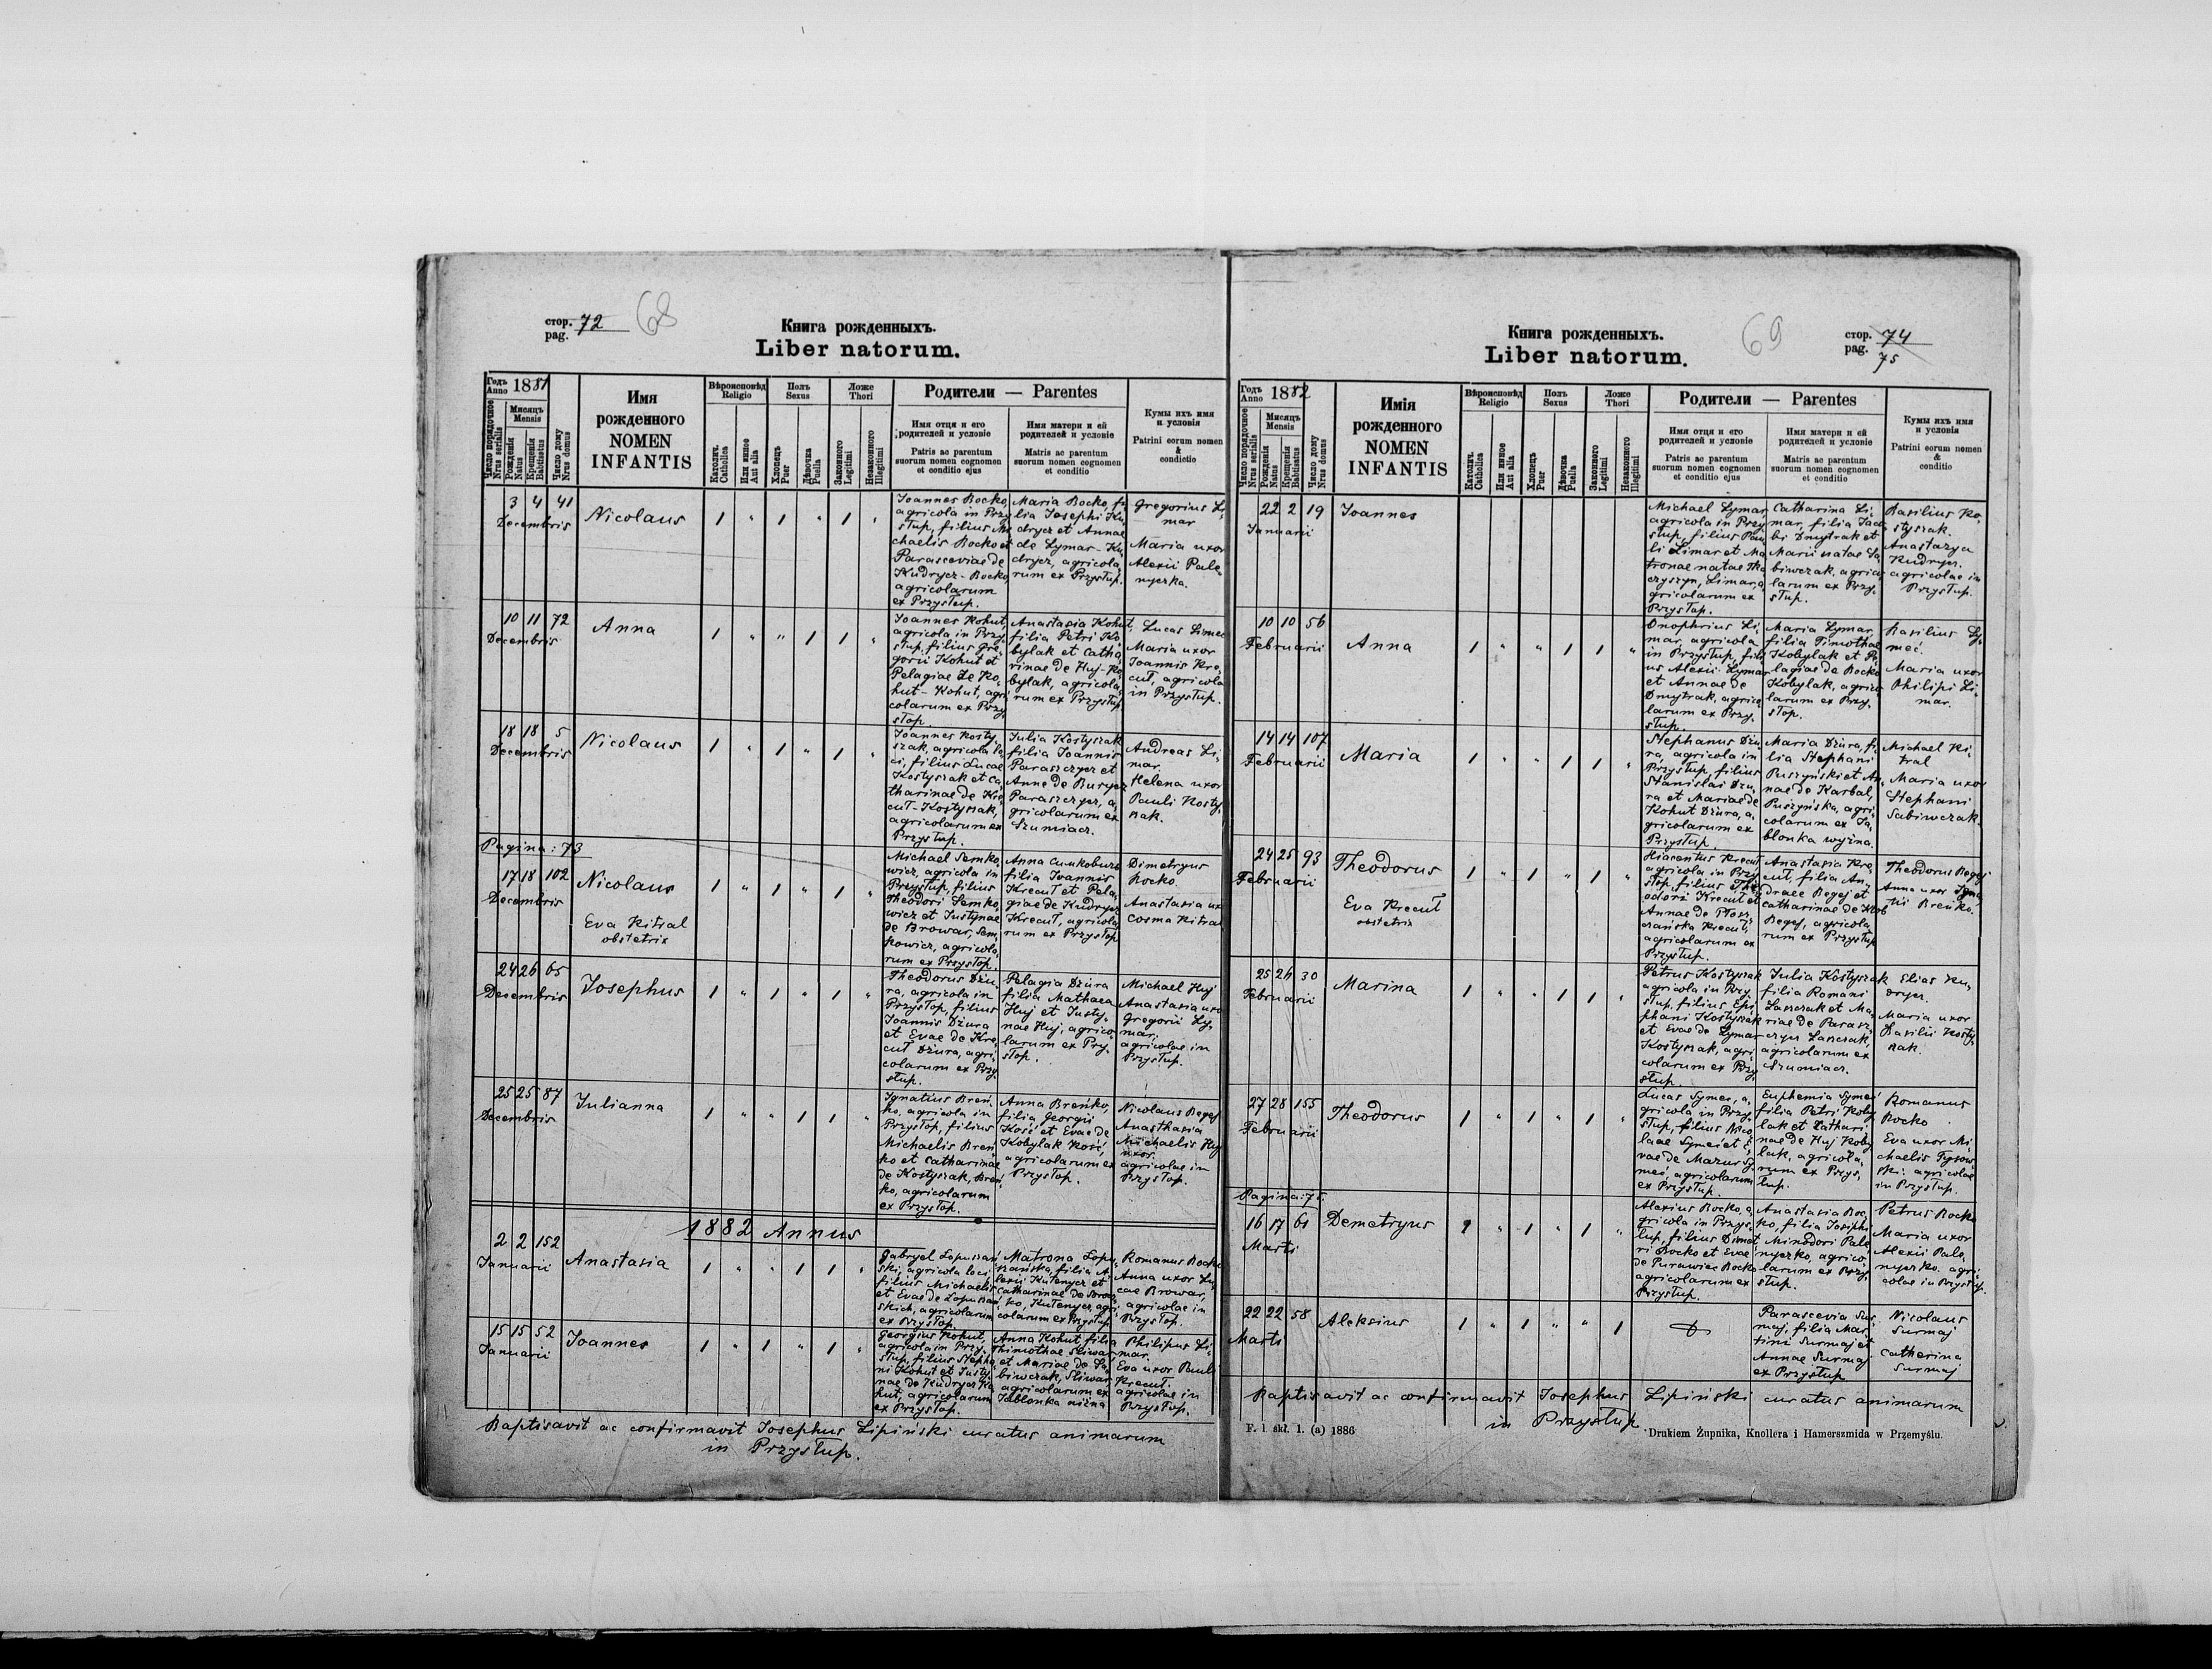 стор. 72 68
pag.
Книга рожденныхъ.
Liber natorum.
Годъ Anno 1881
Число порядочное Nrus serialis
Мисяцъ Mensis
Рожденія Natus
Крещенія Babtisatus
Число дому Nrus domus
Имя
рожденного
NOMEN
INFANTIS
Вѣроисповѣд Religio
Католич. Catholica
Или иное Aut alia
Полъ Sexus
Хлопецъ Puer
Дѣвочка Puella
Ложе Thori
Законного Legitimi
Незаконного Illegitimi
Родители — Parentes
Имя отця и его
родителей и условіе
Patris ac parentum
suorum nomen cognomen
et conditio ejus
Имя матери и ей
родителей и условіе
Matris ac parentum
suorum nomen cognomen
et conditio
Кумы ихъ имя
и условія
Patrini eorum nomen
&
condictio
3 4 41
Decembris
Nicolaus
1 " 1 " 1 "
Joannes Bocko
agricola in Przy
stup, filius Mi
chaelis Bocko et
Parasceviae de
Kudrycz - Bocko
agricolarum
ex Przysłup.
Maria Bocko, fi
lia Josephi Ku
drycz et Annae
de Lymar - Ku
drycz, agricola
rum ex Przysłup.
Gregorius Ly
mar
Maria uxor
Alexii Pale
nyczka.
10 11 72
Decembris
Anna
1 " " 1 1 "
Joannes Kohut
agricola in Przy
stup, filius Gre
gorii Kohut et
Pelagiae de Ko
hut - Kohut, agri
colarum ex Przy
słop.
Anastasia Kohut,
filia Petri Ko
bylak et Catha
rinae de Huj - Ko
bylak, agricola
rum ex Przysłup
Lucas Simec
Maria uxor
Joannis Kre
cuł, agricola
in Przysłup.
18 18 5
Decembris
Nicolaus
1 " 1 " 1 "
Joannes Kosty
szak, agricola lo
ci, filius Lucae
Kostyszak et Ca
tharinae de Kre
cuł - Kostyszak,
agricolarum ex
Przysłup.
Julia Kostyszak
filia Joannis
Paraszczycz et
Anne de Burycz
Paraszczycz, a
gricolarum ex
Szumiacz.
Andreas Li
mar.
Helena uxor
Pauli Kosty
szak.
Pagina: 73
17 18 102
Decembris
Nicolaus
Eva Kitral
obstetrix
1 " 1 " 1 "
Michael Semko
wicz, agricola in
Przysłup, filius
Theodori Semko
wicz et Justynae
de Browar, Sem
kowicz, agricola
rum ex Przysłop.
filia Joannis
Krecuł et Pela
giae de Kudrycz
Krecuł, agricola
rum ex Przysłop
Dimetryus
Bocko.
Anastasia ux
Cosma Kitral
24 26 65
Decembris
Josephus
1 " 1 " 1 "
Theodorus Dżu
ra, agricola in
Przysłop, filius
Joannis Dżura
et Evae de Kre
cuł Dżura, agri
colarum ex Przy
słup.
Pelagia Dżura
filia Mathaea
Huj et Justy
nae Huj, agrico
larum ex Prz
słop.
Michael Huj
Anastasia uxo
Gregorii Ly
mar,
agricolae in
Przysłup.
25 25 87
Decembris
Julianna
1 " " 1 1 "
Ignatius Breń
ko, agricola in
Przysłop, filius
Michaelis Breń
ko et Catharinae
de Kostyszak, Breń
ko, agricolarum
ex Przysłop.
Anna Breńko
filia Georgii
Kość et Evae de
Kobylak Kość,
agricolarum ex
Przysłop.
Nicolaus Begej
Anasthasia
Michaelis Huj
uxor.
agricolae in
Przysłop.
1882 Annus
2 2 152
Januarii
Anastasia
1 " " 1 1 "
Gabryel Lopuszań
ski, agricola loci
filius Michaelis
et Evae de Lopuszań
skich, agricolarum
ex Przysłop.
Matrona Lopu
szańska, filia A
lexii Kułenycz et
Catharinae de
ko, Kułenycz, agri
colarum ex Przysłup
Romanus Bocko
Anna uxor Lu
cae Browar,
agricolae in
Przysłop.
15 15 52
Januarii
Joannes
1 " 1 " 1 "
Georgius Kohut,
agricola in Przy
słup, filius Stepha
ni Kohut et Justy
nae de Kudrycz Ko
hut, agricolarum
ex Przysłop.
Anna Kohut filia
Thimothae Sliwar
et Mariae de Sa
biwczak, Sliwar
agricolarum ex
Jablonka niżna
Philipus Li
mar.
Eva uxor Pauli
Krecuł.
agricolae in
Przysłup.
Baptisavit ac confirmavit Josephus Lipiński curatus animarum
in Przysłup.
Книга рожденныхъ.
Liber natorum.
69
стор. 74
pag. 75
Годъ Anno 1882
Число порядочное Nrus serialis
Мисяцъ Mensis
Рожденія Natus
Крещенія Babtisatus
Число дому Nrus domus
Имія
рожденного
NOMEN
INFANTIS
Вѣроисповѣд Religio
Католич. Catholica
Или иное Aut alia
Полъ Sexus
Хлопецъ Puer
Дѣвочка Puella
Ложе Thori
Законного Legitimi
Незаконного Illegitimi
Родители — Parentes
Имя отця и его
родителей и условіе
Patris ac parentum
suorum nomen cognomen
et conditio ejus
Имя матери и ей
родителей и условіе
Matris ac parentum
suorum nomen cognomen
et conditio
Кумы ихъ имя
и условія
Patrini eorum nomen
&
conditio
22 2 19
Januarii
Joannes
Michael Lymar
agricola in Przy
stup, filius Pau
li Limar et Ma
tronae natae Tka
czyszyn, Limar, a
gricolarum ex
Przysłop.
Catharina Li
mar, filia Jaco
bi Dmytrak et
Marii natae Sa
biwczak, agrico
larum ex Przy
słup.
Basilius Ko
styszak.
Anastazya
Kudrycz.
agricolae in
Przysłup.
10 10 56
Februarii
Anna
1 " " 1 1 "
Onophrius Li
mar, agricola
in Przysłup, fili
us Alexii Lymar
et Annae de
Dmytrak, agrico
larum ex Przy
słup.
Maria Lymar
filia Timothae
Kobylak et Pe
lagiae de Bocko
Kobylak, agrico
larum ex Przy
słop.
Basilius Sy
meć.
Maria uxor
Philipi Li
mar.
14 14 107
Februarii
Maria
1 " " 1 1 "
Stephanus Dżu
ra, agricola in
Przysłup, filius
Stanislai Dżu
ra et Mariae de
Kohut Dżura, a
gricolarum ex
Przysłup.
Maria Dżura, fi
lia Stephani
Puszyński et An
nae de Karbal,
Puszyńska, agri
colarum ex Ja
blonka wyżna.
Michael Ki
tral
Maria uxor
Stephani
Sabiwczak.
24 25 93
Februarii
Theodorus
Eva Krecuł
obstetrix
1 " 1 " 1 "
Hiacentus Krecuł
agricola in Przy
słop, filius Theo
dori Krecuł et
Annae de Płosz
czańska Krecuł,
agricolarum ex
Przysłup.
Anastasia Kre
cuł, filia An
dreae Begej et
Catharinae de
Begej, agricola
rum ex Przysłup
Theodorus Begej
Anna uxor Igna
tii Breńko.
25 26 30
Februarii
Marina
1 " " 1 1 "
Petrus Kostyszak
agricola in Przy
słup, filius Epi
phani Kostyszak
et Evae de Lymar
Kostyszak, agri
colarum ex Przy
słup.
Julia Kostyszak
filia Romani
Laszczak et Ma
riae de Parasz
czycz Laszczak,
agricolarum ex
Szumiacz.
Elias Ku
drycz.
Maria uxor
Basilii Kosty
szak.
27 28 155
Februarii
Theodorus
1 " 1 " 1 "
Lucas Symec, a
gricola in Przy
słup, filius Nico
laae Symeć et E
vae de Mazur Sy
meć, agricolarum
ex Przysłup.
Euphemia Symeć
filia Petri Koby
lak et Cathari
nae de Huj Koby
lak, agricola
rum ex Przys
łup.
Romanus
Bocko
Eva uxor Mi
chaelis Tysow
ski. agricolae
in Przysłup.
Pagina: 75.
16 17 61
Marti
Demetryus
1 " 1 " 1 "
Alexius Bocko, a
gricola in Przys
łup, filius Dimet
ri Bocko et Evae
de Purawiec Bocko
agricolarum ex
Przysłup.
Anastasia Boc
ko, filia Josiphi
Minodori Pale
nyczko, agrico
larum ex Przy
słup.
Petrus Bocko
Maria uxor
Alexii Pale
nyczko. agri
colae in Przysłup.
22 22 58
Marti
Aleksius
1 " 1 " " 1
Parascevia Sur
maj, filia Mar
tini Surmaj et
Annae Surmaj
ex Przysłup
Nicolaus
Surmaj
Catherina
Surmaj
Baptisavit ac confirmavit Josephus Lipiński curatus animarum
in Przysłup
F. l. skł. 1. (a) 1886
Drukiem Żupnika, Knollera i Hamerszmida w Przemyślu.